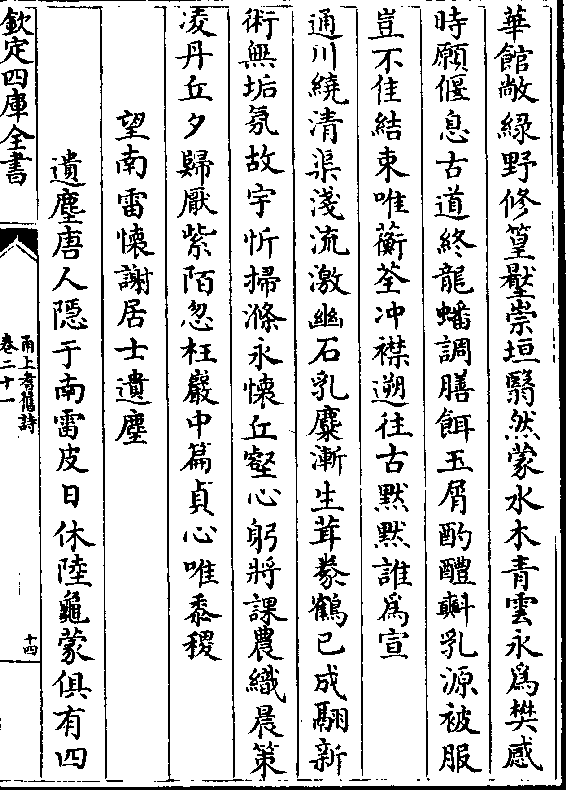 華館敞綠野修篁壂崇垣翳然蒙水木青雲永爲樊感
時願偃息古道終龍蟠調膳餌玉屑酌醴㪺乳源被服
豈不佳結束唯蘅荃冲襟遡往古默默誰爲宣
通川繞清渠淺流激幽石乳麋漸生茸豢鶴已成翮新
術無垢氛故宇忻掃滌永懷丘壑心躬將課農織晨策
凌丹丘夕歸厭紫陌忽枉巖中篇貞心唯黍稷
望南雷懷謝居士遺塵
遺塵唐人隱于南雷皮日休陸龜蒙俱有四
欽定四庫全書
甬上耆舊詩
卷二十一
十四